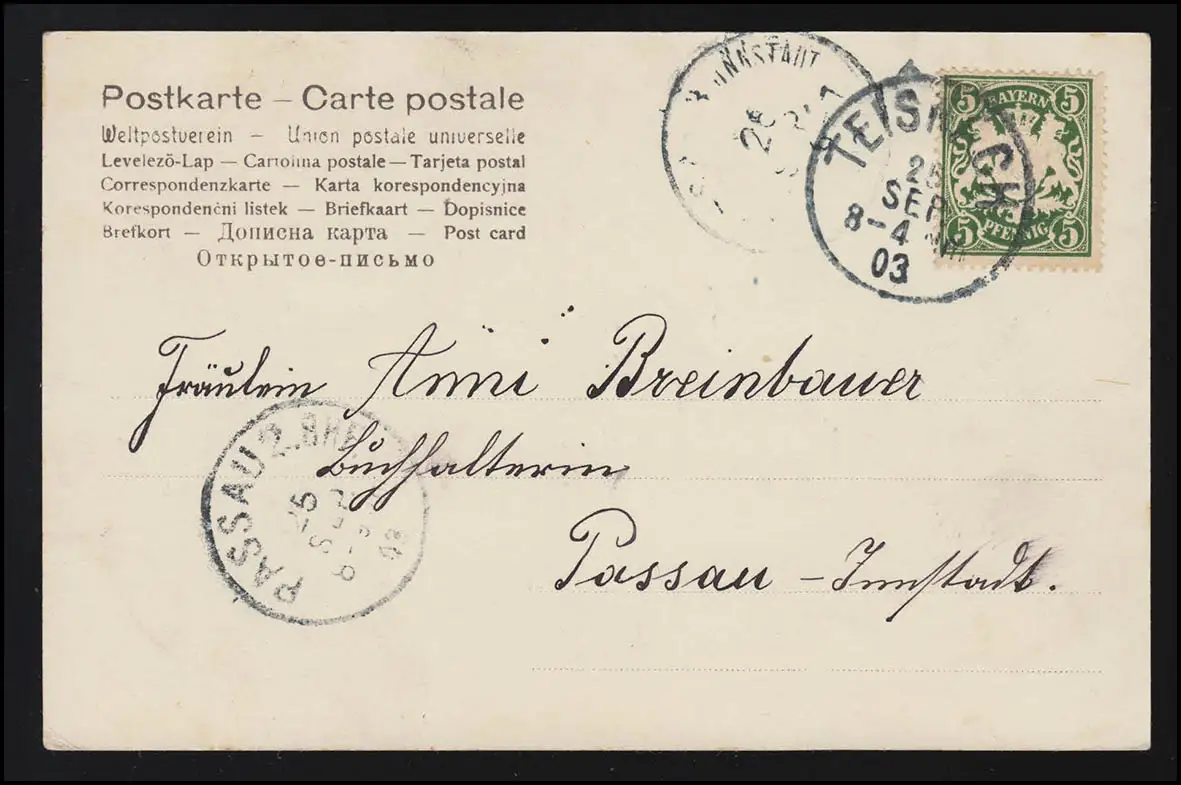 Postkarte – Carte postale
Weltpostverein – Union postale universelle
Levelező-Lap – Cartolina postale – Tarjeta postal
Correspondenzkarte – Karta korespondencyjna
Korespondenční listek – Briefkaart – Dopisnice
Brefkort – Дописна карта – Post card
Открытое-письмо
TEISNACH
25
SEP
8–4 NM
03
5 BAYERN 5
5 PFENNIG 5
Fräulein Anni Breinbauer
Buchhalterin
Passau – Innstadt.
PASSAU 2.
25
SEP
03